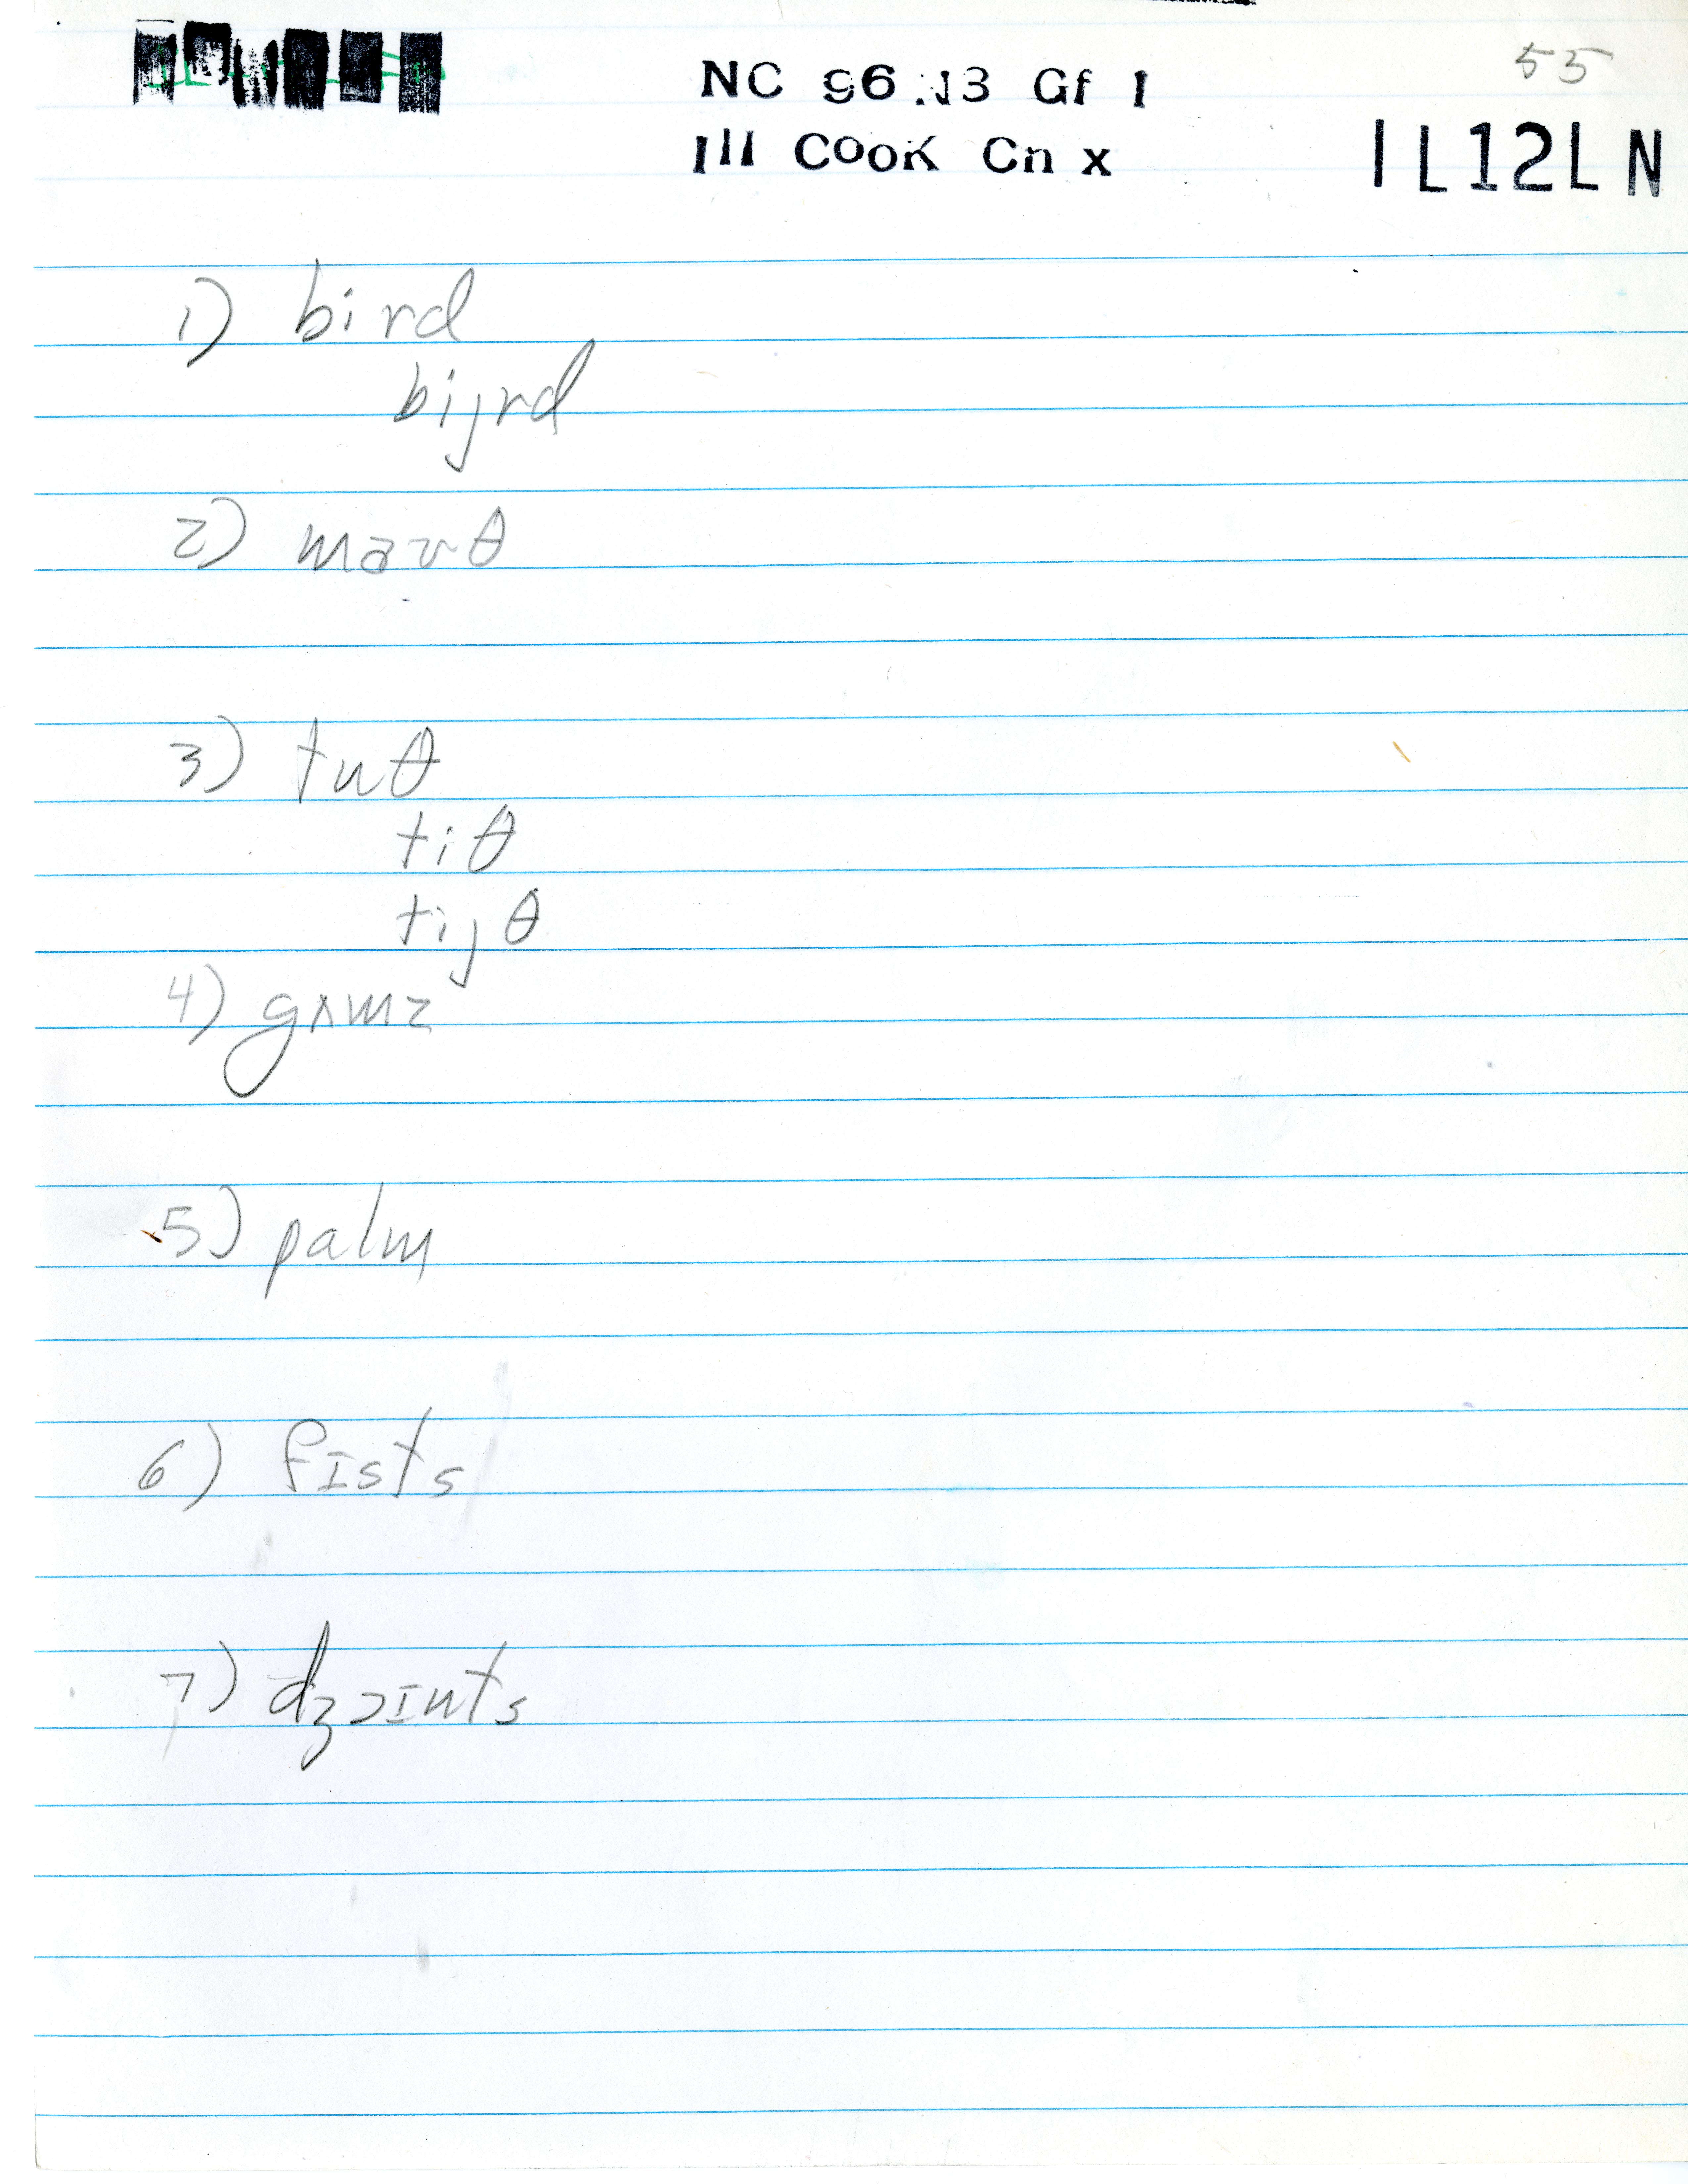 55
NC 96.13 Gf 1
Ill Cook Cn x
IL12LN
1) bird
bijrd
2) maʊθ
3) tuθ
tiθ
tijθ
4) gʌmz
5) palm
6) fɪsts
7) dʒɔɪnts